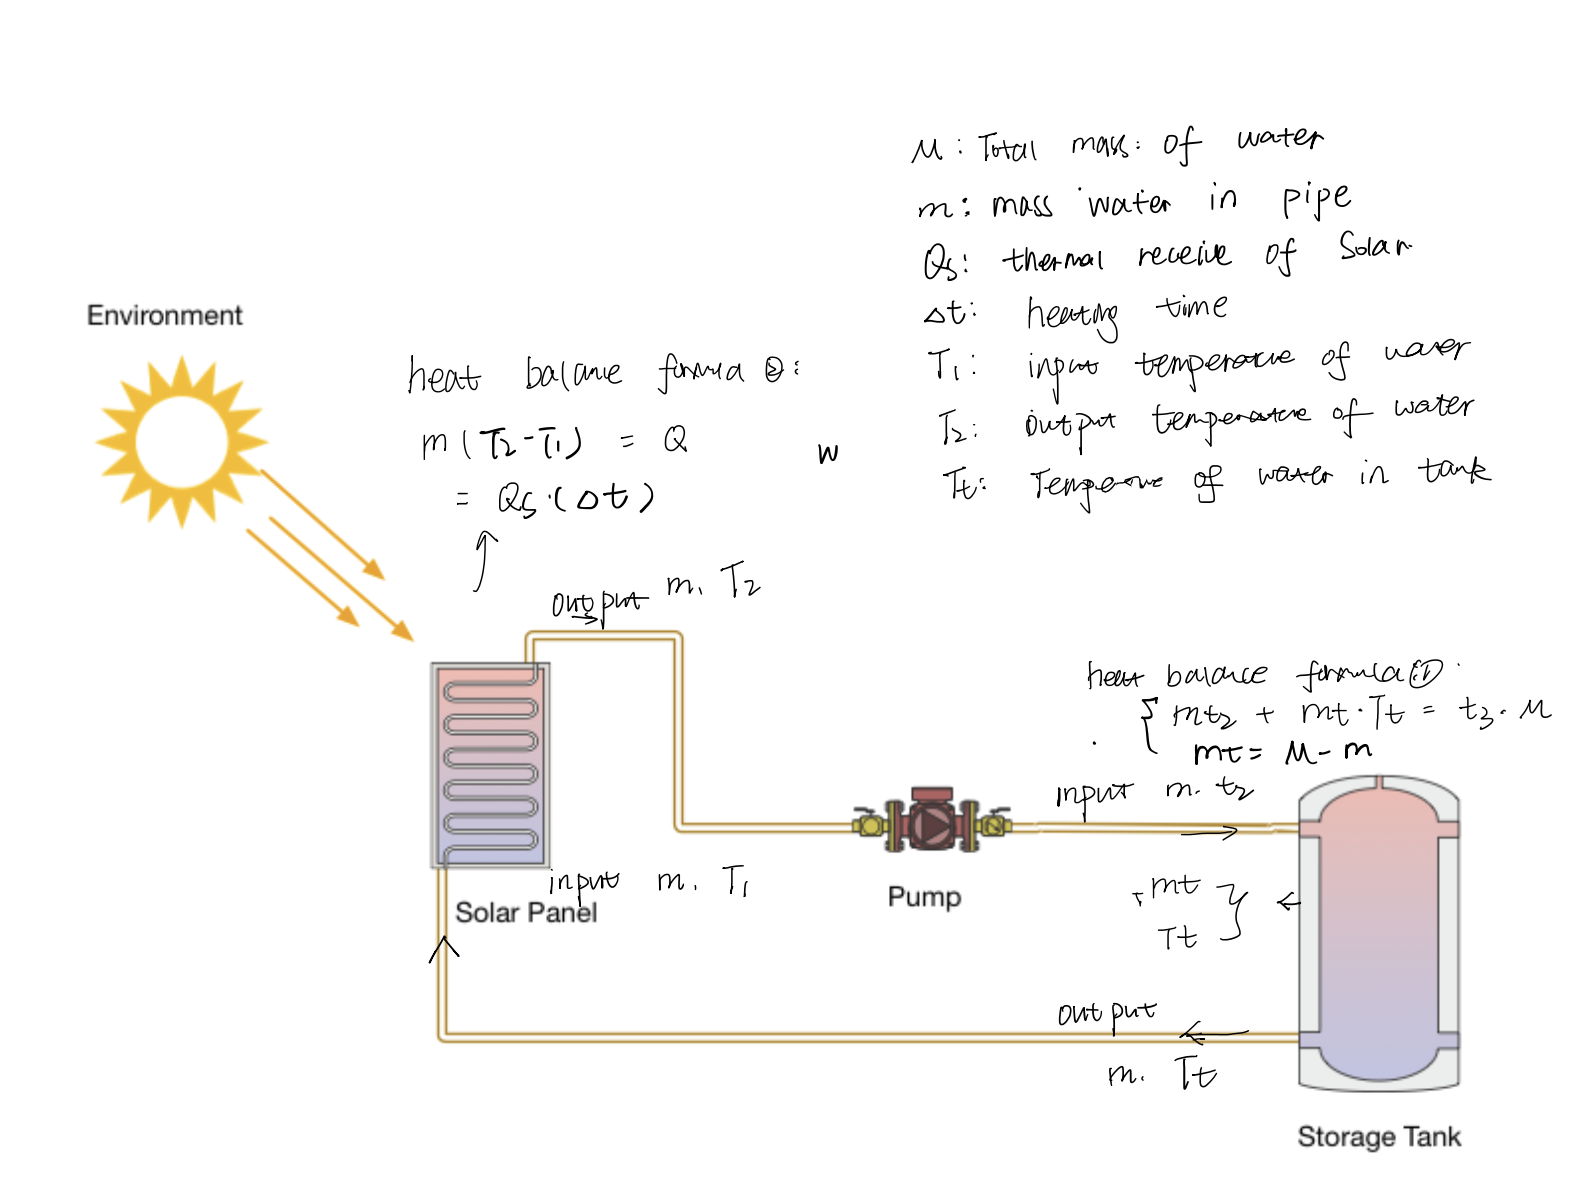 M : Total mass: of water
m: mass water in pipe
Qs: thermal receive of Solar
Δt: heating time
T1: input temperature of water
T2: output temperature of water
Tt: Temperature of water in tank
Environment
heat balance formula ②:
m(T2-T1) = Q
= Qs·(Δt)
w
output m, T2
heat balance formula ①
mt2 + mt·Tt = t3·M
mt = M-m
input m. t2
Pump
input m. T1
Solar Panel
mt
Tt
output
m. Tt
Storage Tank